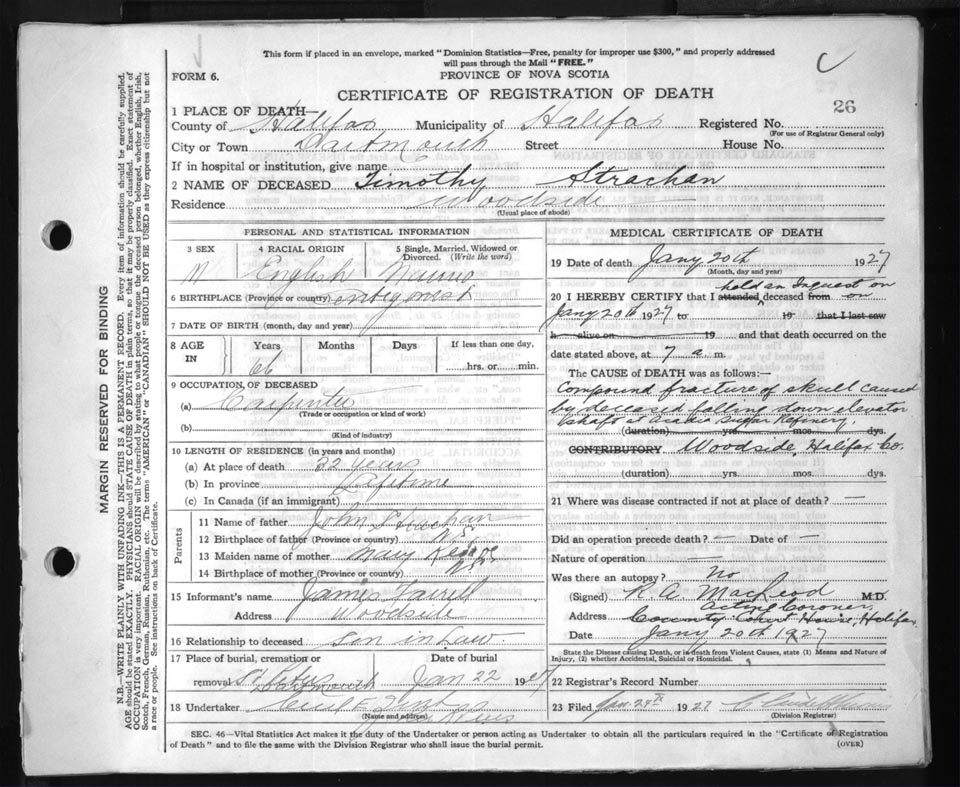 This form if placed in an envelope, marked "Dominion Statistics—Free, penalty for improper use $300," and properly addressed
will pass through the Mail "FREE."
FORM 6.
PROVINCE OF NOVA SCOTIA
CERTIFICATE OF REGISTRATION OF DEATH
26
1 PLACE OF DEATH
County of Halifax Municipality of Halifax Registered No.
(For use of Registrar General only)
City or Town Dartmouth Street House No.
If in hospital or institution, give name
2 NAME OF DECEASED Timothy Strachan
Residence Woodside
(Usual place of abode)
PERSONAL AND STATISTICAL INFORMATION
3 SEX 4 RACIAL ORIGIN 5 Single, Married, Widowed or Divorced. (Write the word)
M English
6 BIRTHPLACE (Province or country)
7 DATE OF BIRTH (month, day and year)
8 AGE IN Years Months Days If less than one day,
66 hrs. or min.
9 OCCUPATION, OF DECEASED
(a) Carpenter
(Trade or occupation or kind of work)
(b)
(Kind of industry)
10 LENGTH OF RESIDENCE (in years and months)
(a) At place of death 32 years
(b) In province Lifetime
(c) In Canada (if an immigrant)
Parents
11 Name of father John Strachan
12 Birthplace of father (Province or country) N.S.
13 Maiden name of mother Mary
14 Birthplace of mother (Province or country) N.S.
15 Informant's name James
Address Woodside
16 Relationship to deceased Son in Law.
17 Place of burial, cremation or removal St Peters Dartmouth Date of burial Jan 22 1927
18 Undertaker
(Name and address)
MEDICAL CERTIFICATE OF DEATH
19 Date of death Jany 20th 1927
(Month, day and year)
held an Inquest on
20 I HEREBY CERTIFY that I attended deceased from on
Jany 20th 1927 to 19 that I last saw
h alive on 19 and that death occurred on the
date stated above, at 7 a m.
The CAUSE of DEATH was as follows:—
Compound fracture of skull caused
by deceased falling down elevator
shaft at Acadia Sugar Refinery,
(duration) yrs. mos. dys.
CONTRIBUTORY Woodside, Halifax Co.
(duration) yrs. mos. dys.
21 Where was disease contracted if not at place of death? —
Did an operation precede death? — Date of —
Nature of operation —
Was there an autopsy? No
(Signed) R A MacLeod M.D.
Acting Coroner,
Address County Court House, Halifax
Date Jany 20th 1927
State the Disease causing Death, or in death from Violent Causes, state (1) Means and Nature of
Injury, (2) whether Accidental, Suicidal or Homicidal.
22 Registrar's Record Number
23 Filed Jan. 24th 1927
(Division Registrar)
SEC. 46—Vital Statistics Act makes it the duty of the Undertaker or person acting as Undertaker to obtain all the particulars required in the "Certificate of Registration
of Death" and to file the same with the Division Registrar who shall issue the burial permit.
(OVER)
MARGIN RESERVED FOR BINDING
N.B.—WRITE PLAINLY WITH UNFADING INK—THIS IS A PERMANENT RECORD. Every item of information should be carefully supplied.
AGE should be stated EXACTLY. PHYSICIANS should STATE CAUSE OF DEATH in plain terms, so that it may be properly classified. Exact statement of
OCCUPATION is very important. RACIAL ORIGIN will be described by stating to what people or tongue the deceased person belonged, whether English, Irish,
Scotch, French, German, Russian, Ruthenian, etc. The terms "AMERICAN" or "CANADIAN" SHOULD NOT BE USED as they express citizenship but not
a race or people. See instructions on back of Certificate.